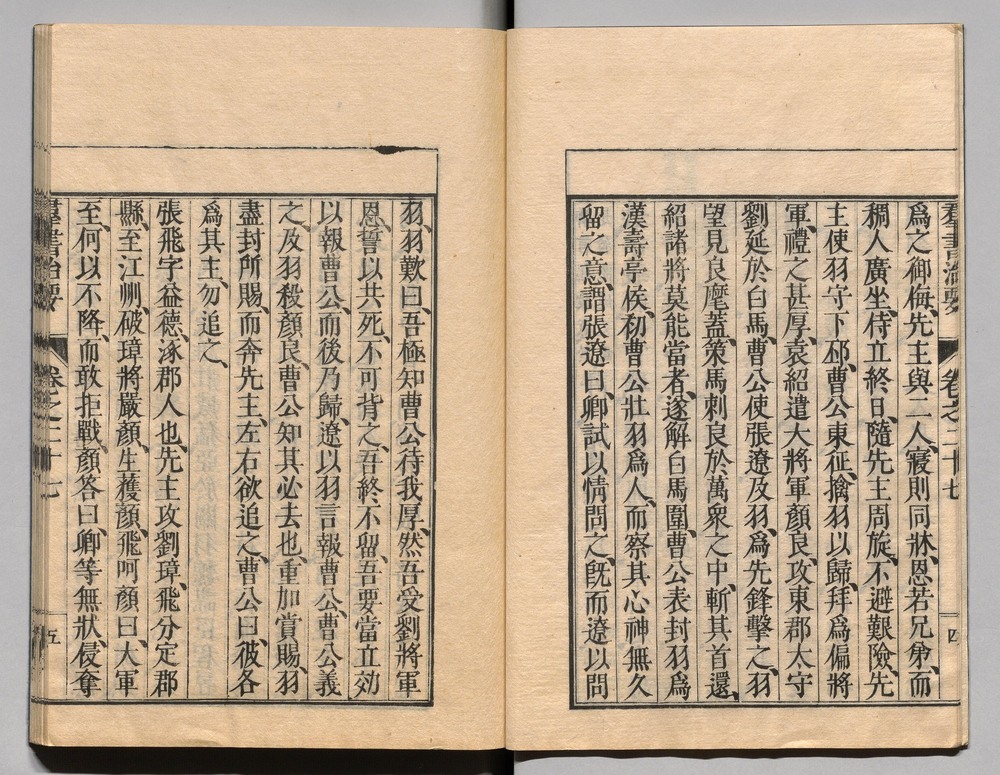 羣書治要 卷之二十七 四
爲之御侮、先主與二人、寢則同牀、恩若兄弟、而
稠人廣坐、侍立終日、隨先主周旋、不避艱險、先
主使羽守下邳、曹公東征、擒羽以歸、拜爲偏將
軍、禮之甚厚、袁紹遣大將軍顏良、攻東郡太守
劉延於白馬、曹公使張遼及羽、爲先鋒擊之、羽
望見良麾蓋、策馬刺良於萬衆之中、斬其首還、
紹諸將莫能當者、遂解白馬圍、曹公表封羽爲
漢壽亭侯、初曹公壯羽爲人、而察其心神無久
留之意、謂張遼曰、卿試以情問之、旣而遼以問
羽、羽歎曰、吾極知曹公待我厚、然吾受劉將軍
恩、誓以共死、不可背之、吾終不留、吾要當立効
以報曹公、而後乃歸、遼以羽言報曹公、曹公義
之、及羽殺顏良、曹公知其必去也、重加賞賜、羽
盡封所賜、而奔先主、左右欲追之、曹公曰、彼各
爲其主、勿追之、
張飛字益德、涿郡人也、先主攻劉璋、飛分定郡
縣、至江州、破璋將嚴顏、生獲顏、飛呵顏曰、大軍
至、何以不降、而敢拒戰、顏答曰、卿等無狀、侵奪
羣書治要 卷之二十七 五